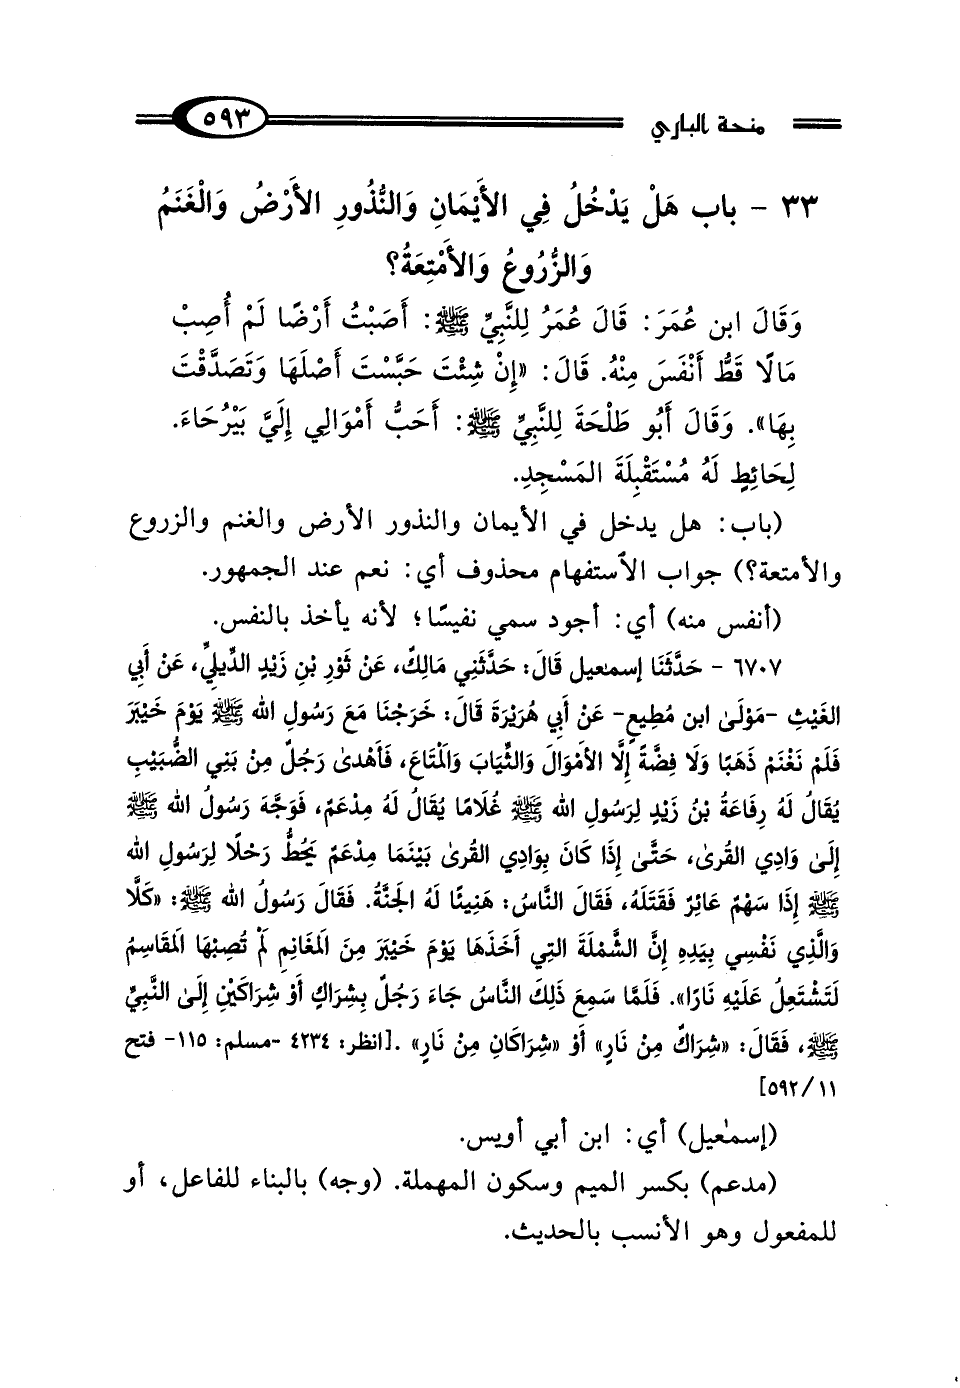 منحة الباري ٥٩٣
٣٣ - باب هَلْ يَدْخُلُ فِي الأَيْمَانِ وَالنُّذُورِ الأَرْضُ وَالْغَنَمُ
وَالزُّرُوعُ وَالأَمْتِعَةُ؟
وَقَالَ ابن عُمَرَ: قَالَ عُمَرُ لِلنَّبِيِّ ﷺ: أَصَبْتُ أَرْضًا لَمْ أُصِبْ
مَالًا قَطُّ أَنْفَسَ مِنْهُ. قَالَ: «إِنْ شِئْتَ حَبَّسْتَ أَصْلَهَا وَتَصَدَّقْتَ
بِهَا». وَقَالَ أَبُو طَلْحَةَ لِلنَّبِيِّ ﷺ: أَحَبُّ أَمْوَالِي إِلَيَّ بَيْرُحَاءَ.
لِحَائِطٍ لَهُ مُسْتَقْبِلَةَ المَسْجِدِ.
(باب: هل يدخل في الأيمان والنذور الأرض والغنم والزروع
والأمتعة؟) جواب الأستفهام محذوف أي: نعم عند الجمهور.
(أنفس منه) أي: أجود سمي نفيسًا؛ لأنه يأخذ بالنفس.
٦٧٠٧ - حَدَّثَنَا إسمٰعيل قَالَ: حَدَّثَنِي مَالِكٌ، عَنْ ثَوْرِ بْنِ زَيْدٍ الدِّيلِيِّ، عَنْ أَبِي
الغَيْثِ -مَوْلَىٰ ابن مُطِيعٍ- عَنْ أَبِي هُرَيْرَةَ قَالَ: خَرَجْنَا مَعَ رَسُولِ الله ﷺ يَوْمَ خَيْبَرَ
فَلَمْ نَغْنَمْ ذَهَبًا وَلَا فِضَّةً إِلَّا الأَمْوَالَ وَالثِّيَابَ وَالْمَتَاعَ، فَأَهْدىٰ رَجُلٌ مِنْ بَنِي الضُّبَيْبِ
يُقَالُ لَهُ رِفَاعَةُ بْنُ زَيْدٍ لِرَسُولِ الله ﷺ غُلَامًا يُقَالُ لَهُ مِدْعَمٌ، فَوَجَّهَ رَسُولُ الله ﷺ
إِلَىٰ وَادِي القُرىٰ، حَتَّىٰ إِذَا كَانَ بِوَادِي القُرىٰ بَيْنَمَا مِدْعَمٌ يَحُطُّ رَحْلًا لِرَسُولِ الله
ﷺ إِذَا سَهْمٌ عَائِرٌ فَقَتَلَهُ، فَقَالَ النَّاسُ: هَنِيئًا لَهُ الجَنَّةُ. فَقَالَ رَسُولُ الله ﷺ: «كَلَّا
وَالَّذِي نَفْسِي بِيَدِهِ إِنَّ الشَّمْلَةَ التِي أَخَذَهَا يَوْمَ خَيْبَرَ مِنَ المَغَانِمِ لَمْ تُصِبْهَا المَقَاسِمُ
لَتَشْتَعِلُ عَلَيْهِ نَارًا». فَلَمَّا سَمِعَ ذَلِكَ النَّاسُ جَاءَ رَجُلٌ بِشِرَاكٍ أَوْ شِرَاكَيْنِ إِلَىٰ النَّبِيِّ
ﷺ، فَقَالَ: «شِرَاكٌ مِنْ نَارٍ» أَوْ «شِرَاكَانِ مِنْ نَارٍ» .[انظر: ٤٢٣٤ -مسلم: ١١٥- فتح
١١/ ٥٩٢]
(إسمٰعيل) أي: ابن أبي أويس.
(مدعم) بكسر الميم وسكون المهملة. (وجه) بالبناء للفاعل، أو
للمفعول وهو الأنسب بالحديث.